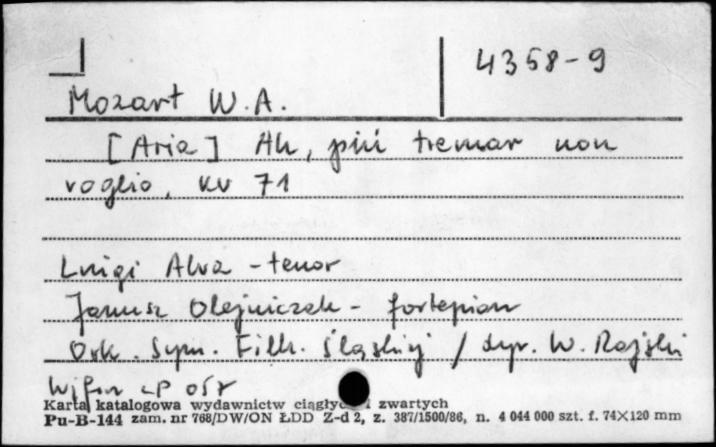 4358-9
Mozart W.A.
[Aria] Ah, più tremar non
voglio, KV 71
Luigi Alva - tenor
Janusz Olejniczak - fortepian
Ork. Sym. Filh. Śląskiej / dyr. W. Rajski
Wifon LP 057
Karta katalogowa wydawnictw ciągłych i zwartych
Pu-B-144 zam. nr 768/DW/ON ŁDD Z-d 2, z. 387/1500/86, n. 4 044 000 szt. f. 74×120 mm